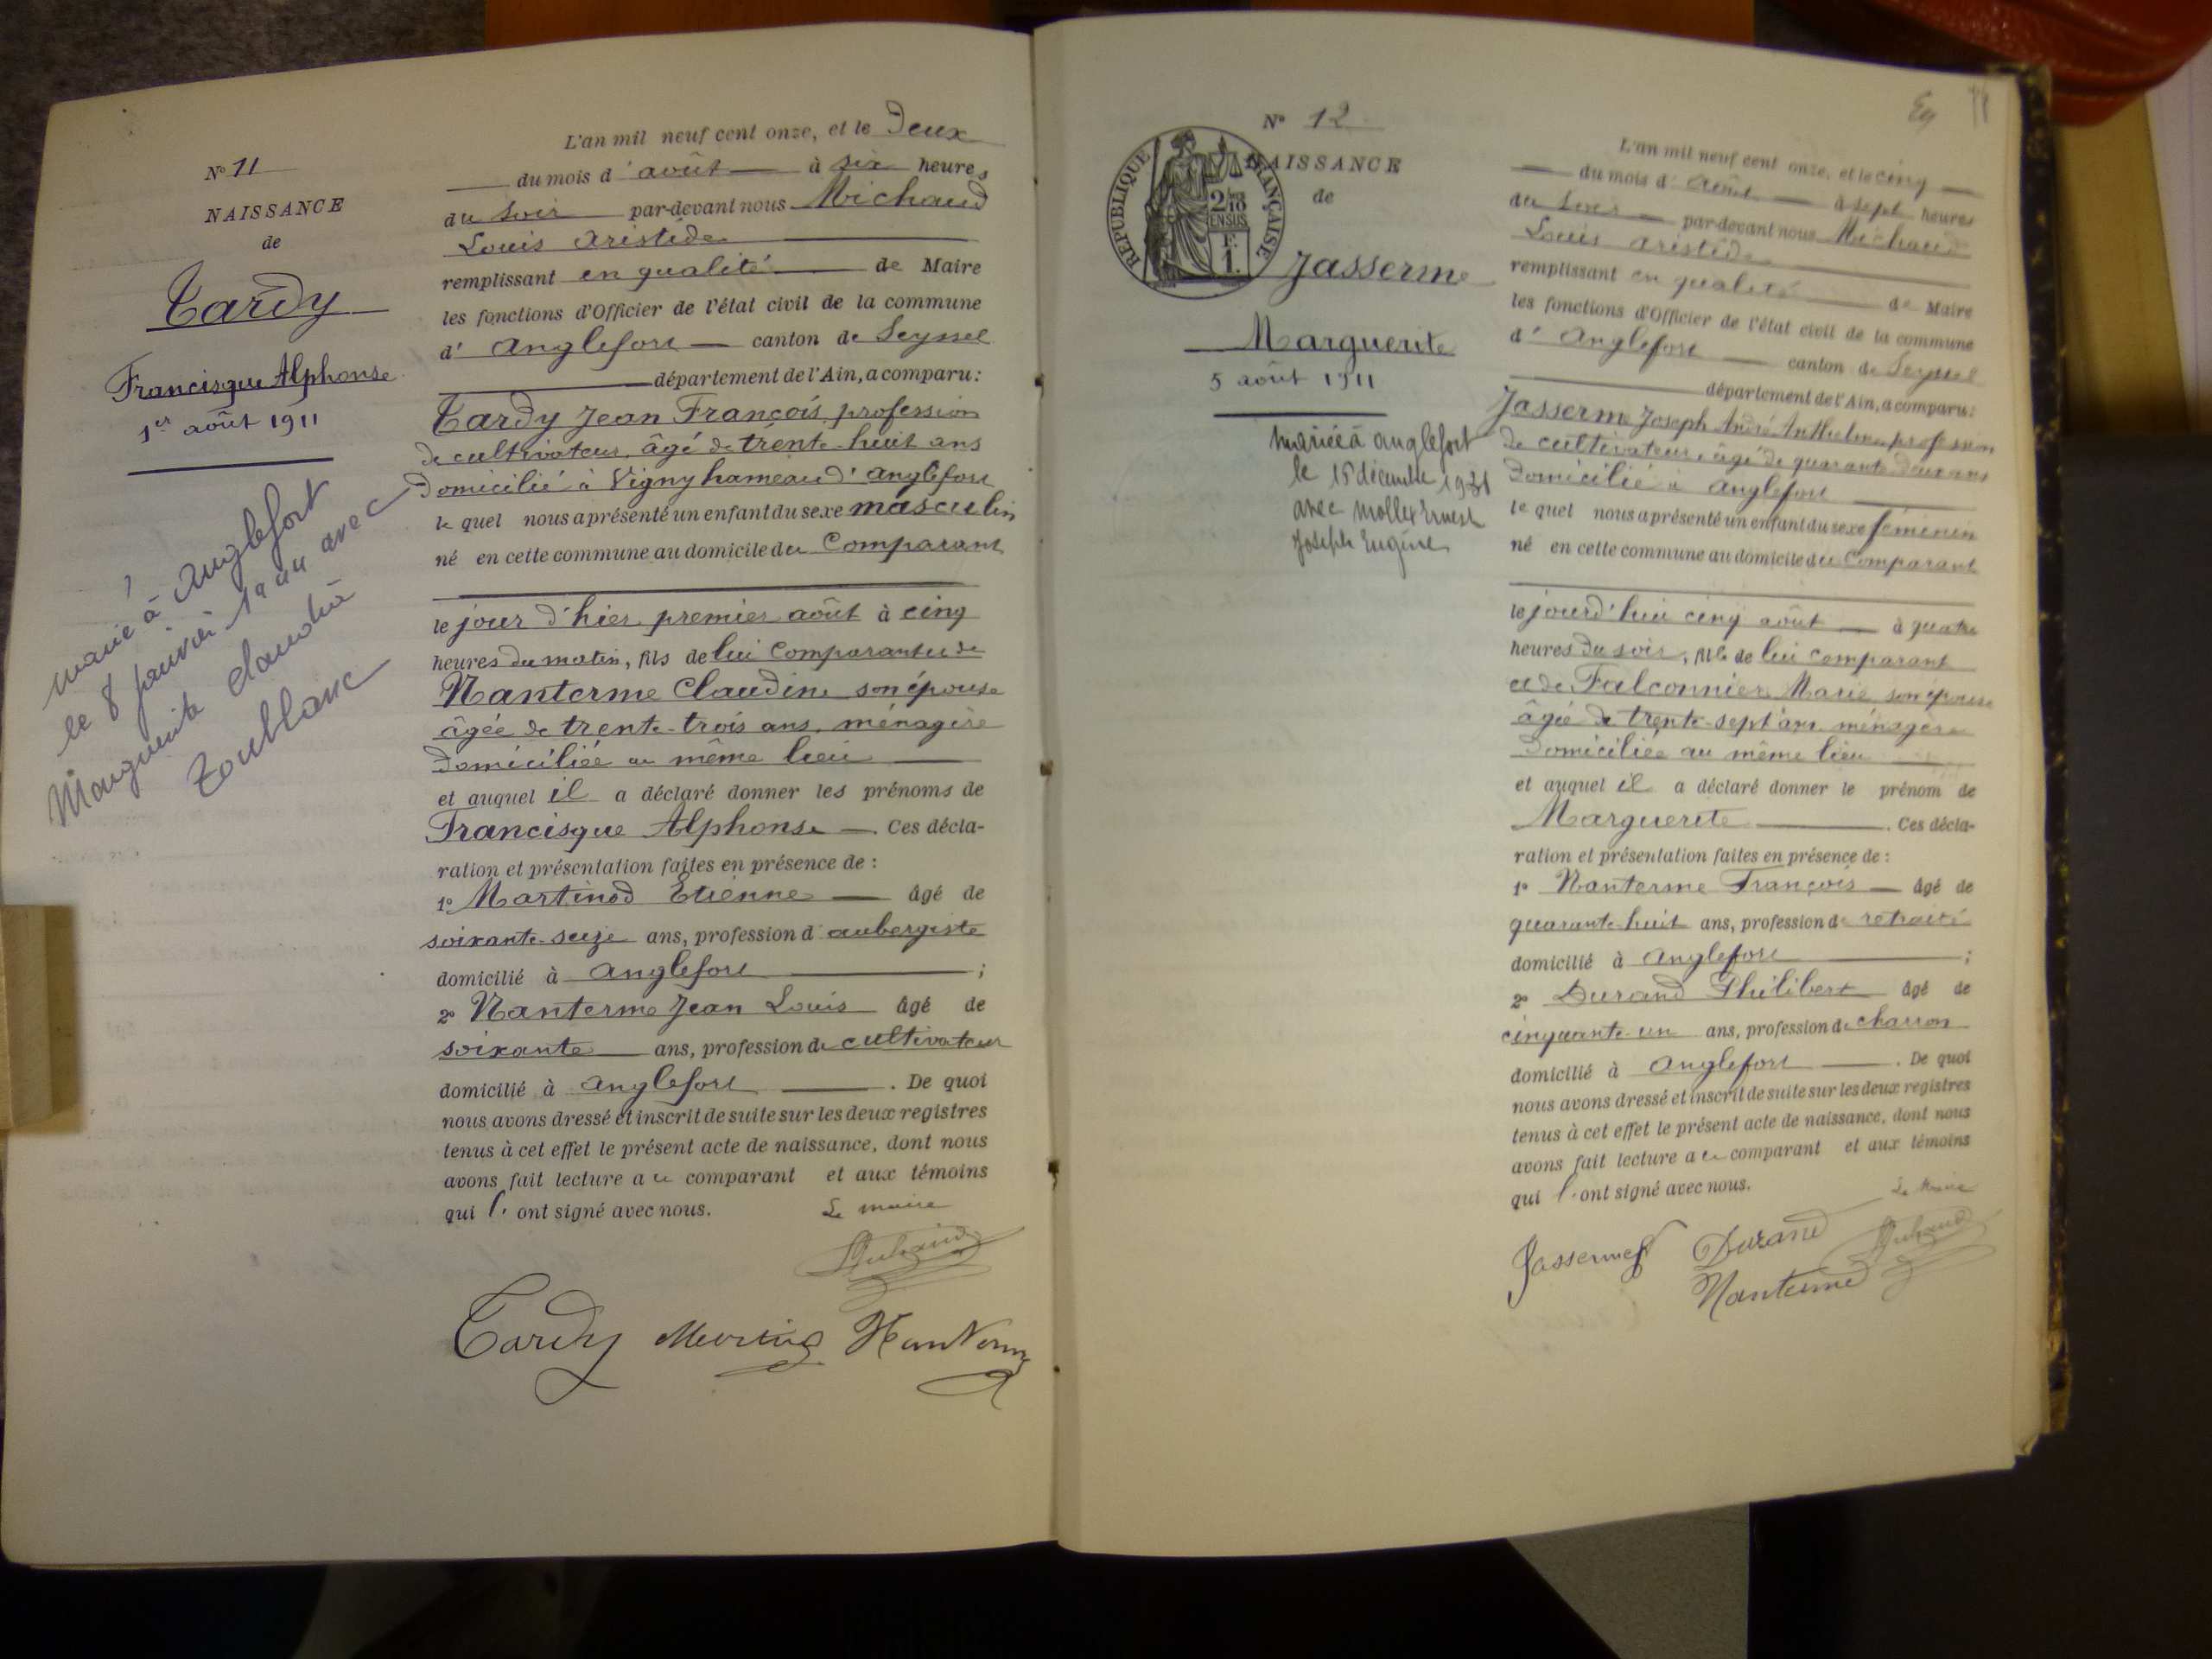 N° 11
NAISSANCE
de
Tardy
Francisque Alphonse
1er août 1911
marié à Anglefort
le 8 janvier avec
Marguerite Claudia
L'an mil neuf cent onze, et le Deux
du mois d'août à six heures
du soir par-devant nous Michaud
Louis Aristide
remplissant en qualité de Maire
les fonctions d'Officier de l'état civil de la commune
d'Anglefort canton de Seyssel
département de l'Ain, a comparu :
Tardy Jean François, profession
de cultivateur, âgé de trente-huit ans
Domicilié à Vigny hameau d'Anglefort
le quel nous a présenté un enfant du sexe masculin
né en cette commune au domicile du Comparant
le jour d'hier premier août à cinq
heures du matin, fils de lui Comparant et de
Nanterme Claudine son épouse
âgée de trente-trois ans, ménagère
Domiciliée au même lieu
et auquel il a déclaré donner les prénoms de
Francisque Alphonse . Ces décla-
ration et présentation faites en présence de :
1° Martinod Etienne âgé de
soixante-seize ans, profession d'aubergiste
domicilié à Anglefort ;
2° Nanterme Jean Louis âgé de
soixante ans, profession de cultivateur
domicilié à Anglefort . De quoi
nous avons dressé et inscrit de suite sur les deux registres
tenus à cet effet le présent acte de naissance, dont nous
avons fait lecture au comparant et aux témoins
qui l'ont signé avec nous.
Le maire
Tardy
N° 12
NAISSANCE
de
RÉPUBLIQUE FRANÇAISE
2/10
EN SUS
F.
1.
Jasserme
Marguerite
5 août 1911
mariée à Anglefort
le décembre 1931
avec Mollex Ernest
Joseph Eugène
L'an mil neuf cent onze, et le cinq
du mois d'août à sept heures
du soir par-devant nous Michaud
Louis Aristide
remplissant en qualité de Maire
les fonctions d'Officier de l'état civil de la commune
d'Anglefort canton de Seyssel
département de l'Ain, a comparu :
Jasserme Joseph André Anthelme profession
de cultivateur, âgé de quarante-deux ans
Domicilié à Anglefort
le quel nous a présenté un enfant du sexe féminin
né en cette commune au domicile du Comparant
le jourd'hui cinq août à quatre
heures du soir, fille de lui comparant
et de Falconnier Marie son épouse
âgée de trente-sept ans, ménagère
Domiciliée au même lieu
et auquel il a déclaré donner le prénom de
Marguerite . Ces décla-
ration et présentation faites en présence de :
1° Nanterme François âgé de
quarante-huit ans, profession de retraité
domicilié à Anglefort ;
2° Durand Philibert âgé de
cinquante-un ans, profession de charron
domicilié à Anglefort . De quoi
nous avons dressé et inscrit de suite sur les deux registres
tenus à cet effet le présent acte de naissance, dont nous
avons fait lecture au comparant et aux témoins
qui l'ont signé avec nous.
Le Maire
Jasserme Durand
Nanterme